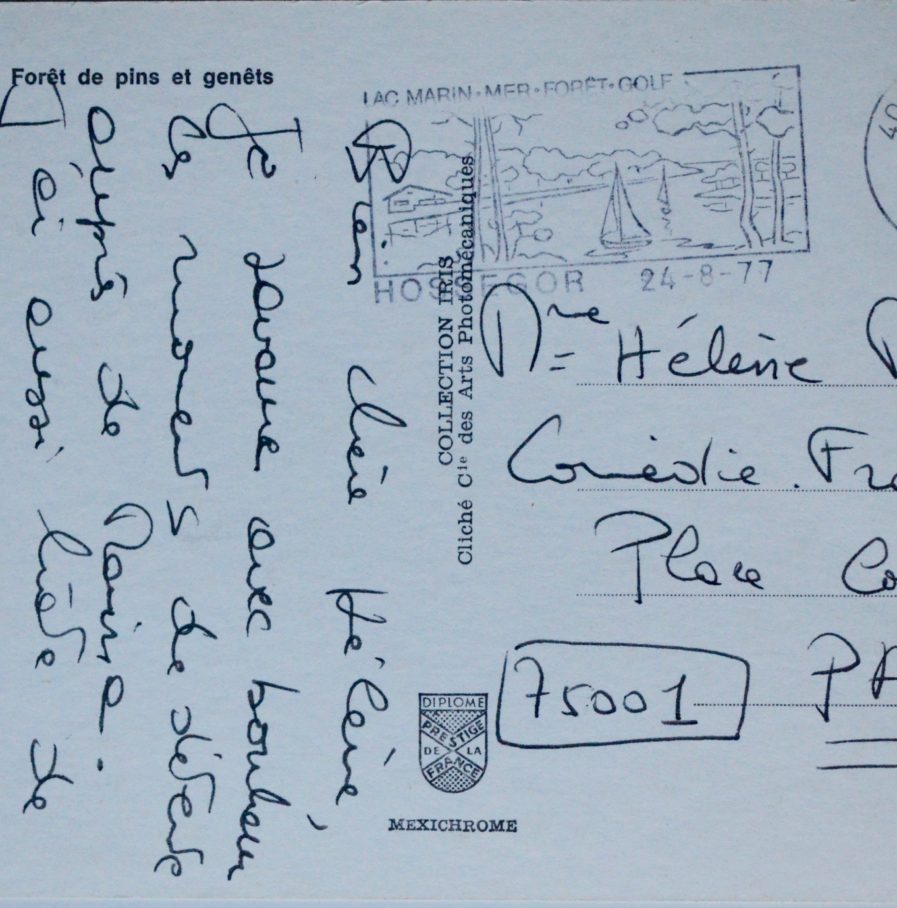 Forêt de pins et genêts
LAC MARIN·MER·FORÊT·GOLF
HOSSEGOR 24-8-77
40
Bien chère Hélène,
Je savoure avec bonheur
ces moments de détente
auprès de Marie.
J'ai aussi hâte de
COLLECTION IRIS
Cliché Cie des Arts Photomécaniques
Mme Hélène P
Comédie. Fra
Place Co
75001 PA
DIPLOME
PRESTIGE
DE LA
FRANCE
MEXICHROME